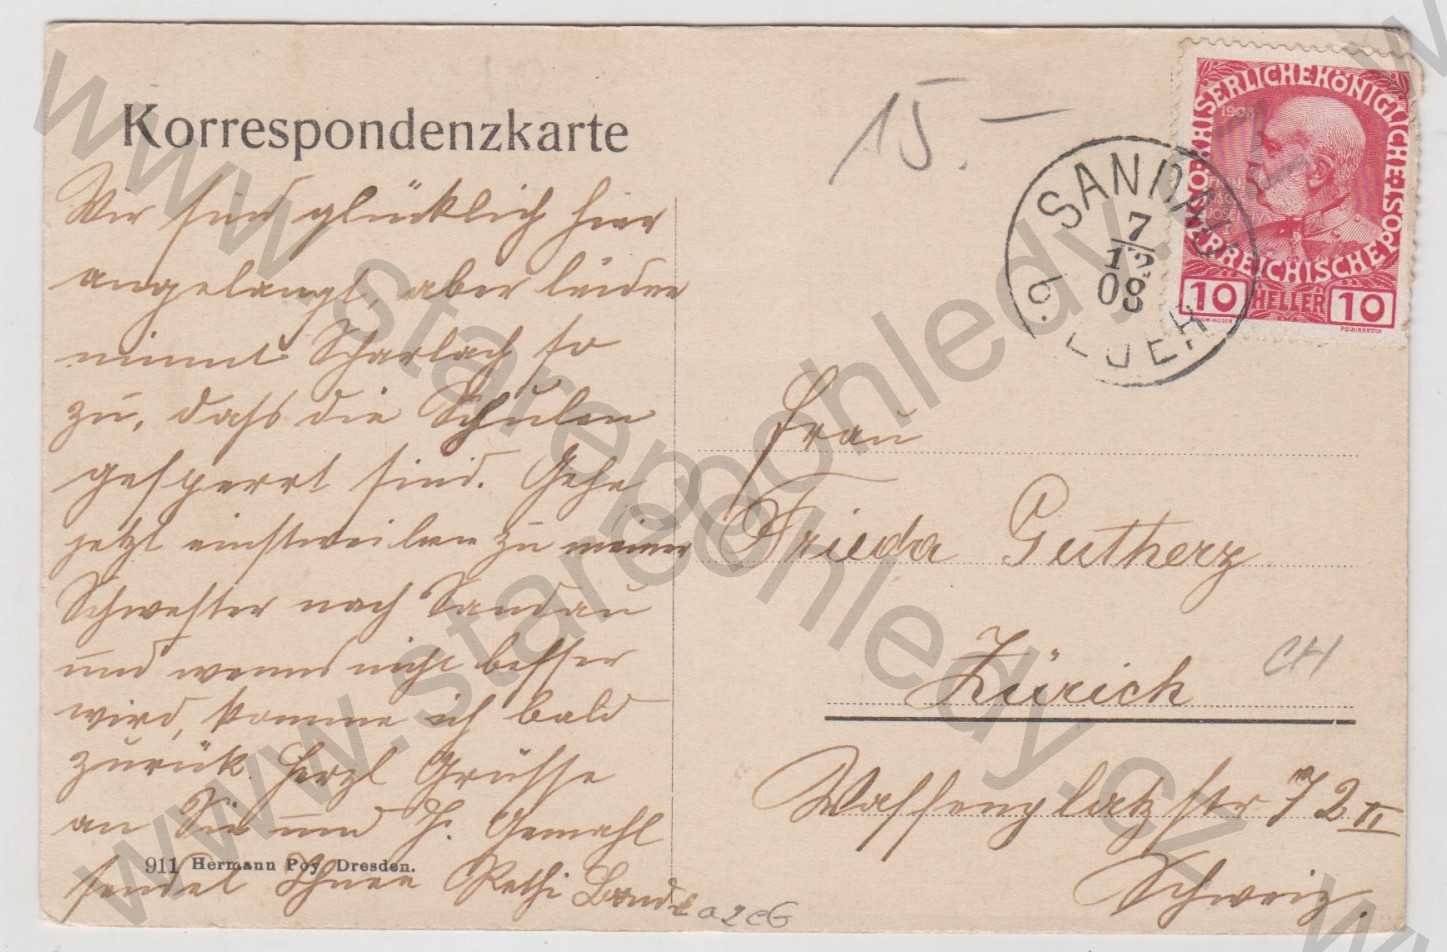 Korrespondenzkarte
15.-
Wir sind glücklich hier
angelangt, aber leider
nimmt Scharlach so
zu, daß die Schulen
gesperrt sind. Gehe
jetzt einstweilen zu meiner
Schwester nach Sandau
und wenns nicht besser
wird, komme ich bald
zurück. Herzl Grüsse
an Sie und H. Gemahl
sendet Ihnen Rethi
911 Hermann Poy, Dresden.
KAISERLICHEKÖNIGLICHE ÖSTERREICHISCHE POST
1908
10 HELLER 10
SANDAU
7
12
08
EGER
Frau
Frieda Gutherz
Zürich
CH
Waffenplatzstr 72 II
Schweiz.
www.starepohledy.cz
www.starepohledy.cz